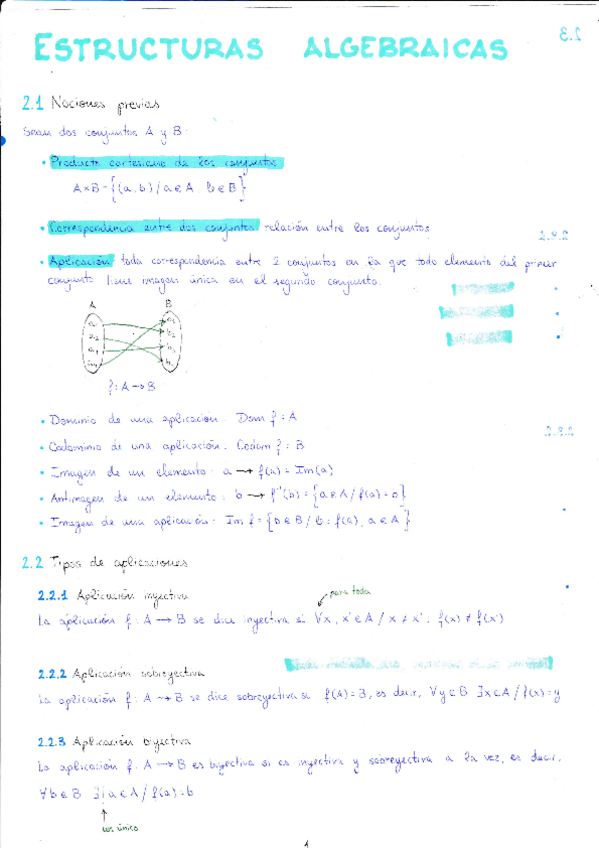 ESTRUCTURAS ALGEBRAICAS
2.1 Nociones previas
Sean dos conjuntos A y B:
• Producto cartesiano de los conjuntos
A×B = {(a, b) / a ∈ A, b ∈ B}
• Correspondencia entre dos conjuntos relación entre los conjuntos
• Aplicación toda correspondencia entre 2 conjuntos en la que todo elemento del primer
conjunto tiene imagen única en el segundo conjunto.
A B
f: A → B
• Dominio de una aplicación: Dom f = A
• Codominio de una aplicación: Codom f = B
• Imagen de un elemento: a → f(a) = Im(a)
• Antimagen de un elemento: b → f⁻¹(b) = {a ∈ A / f(a) = b}
• Imagen de una aplicación: Im f = {b ∈ B / b = f(a), a ∈ A}
2.2 Tipos de aplicaciones
2.2.1 Aplicación inyectiva
para todo
La aplicación f: A → B se dice inyectiva si ∀x, x' ∈ A / x ≠ x' : f(x) ≠ f(x')
2.2.2 Aplicación sobreyectiva
La aplicación f: A → B se dice sobreyectiva si f(A) = B, es decir, ∀y ∈ B ∃x ∈ A / f(x) = y
2.2.3 Aplicación biyectiva
La aplicación f: A → B es biyectiva si es inyectiva y sobreyectiva a la vez, es decir,
∀b ∈ B ∃| a ∈ A / f(a) = b
un único
1